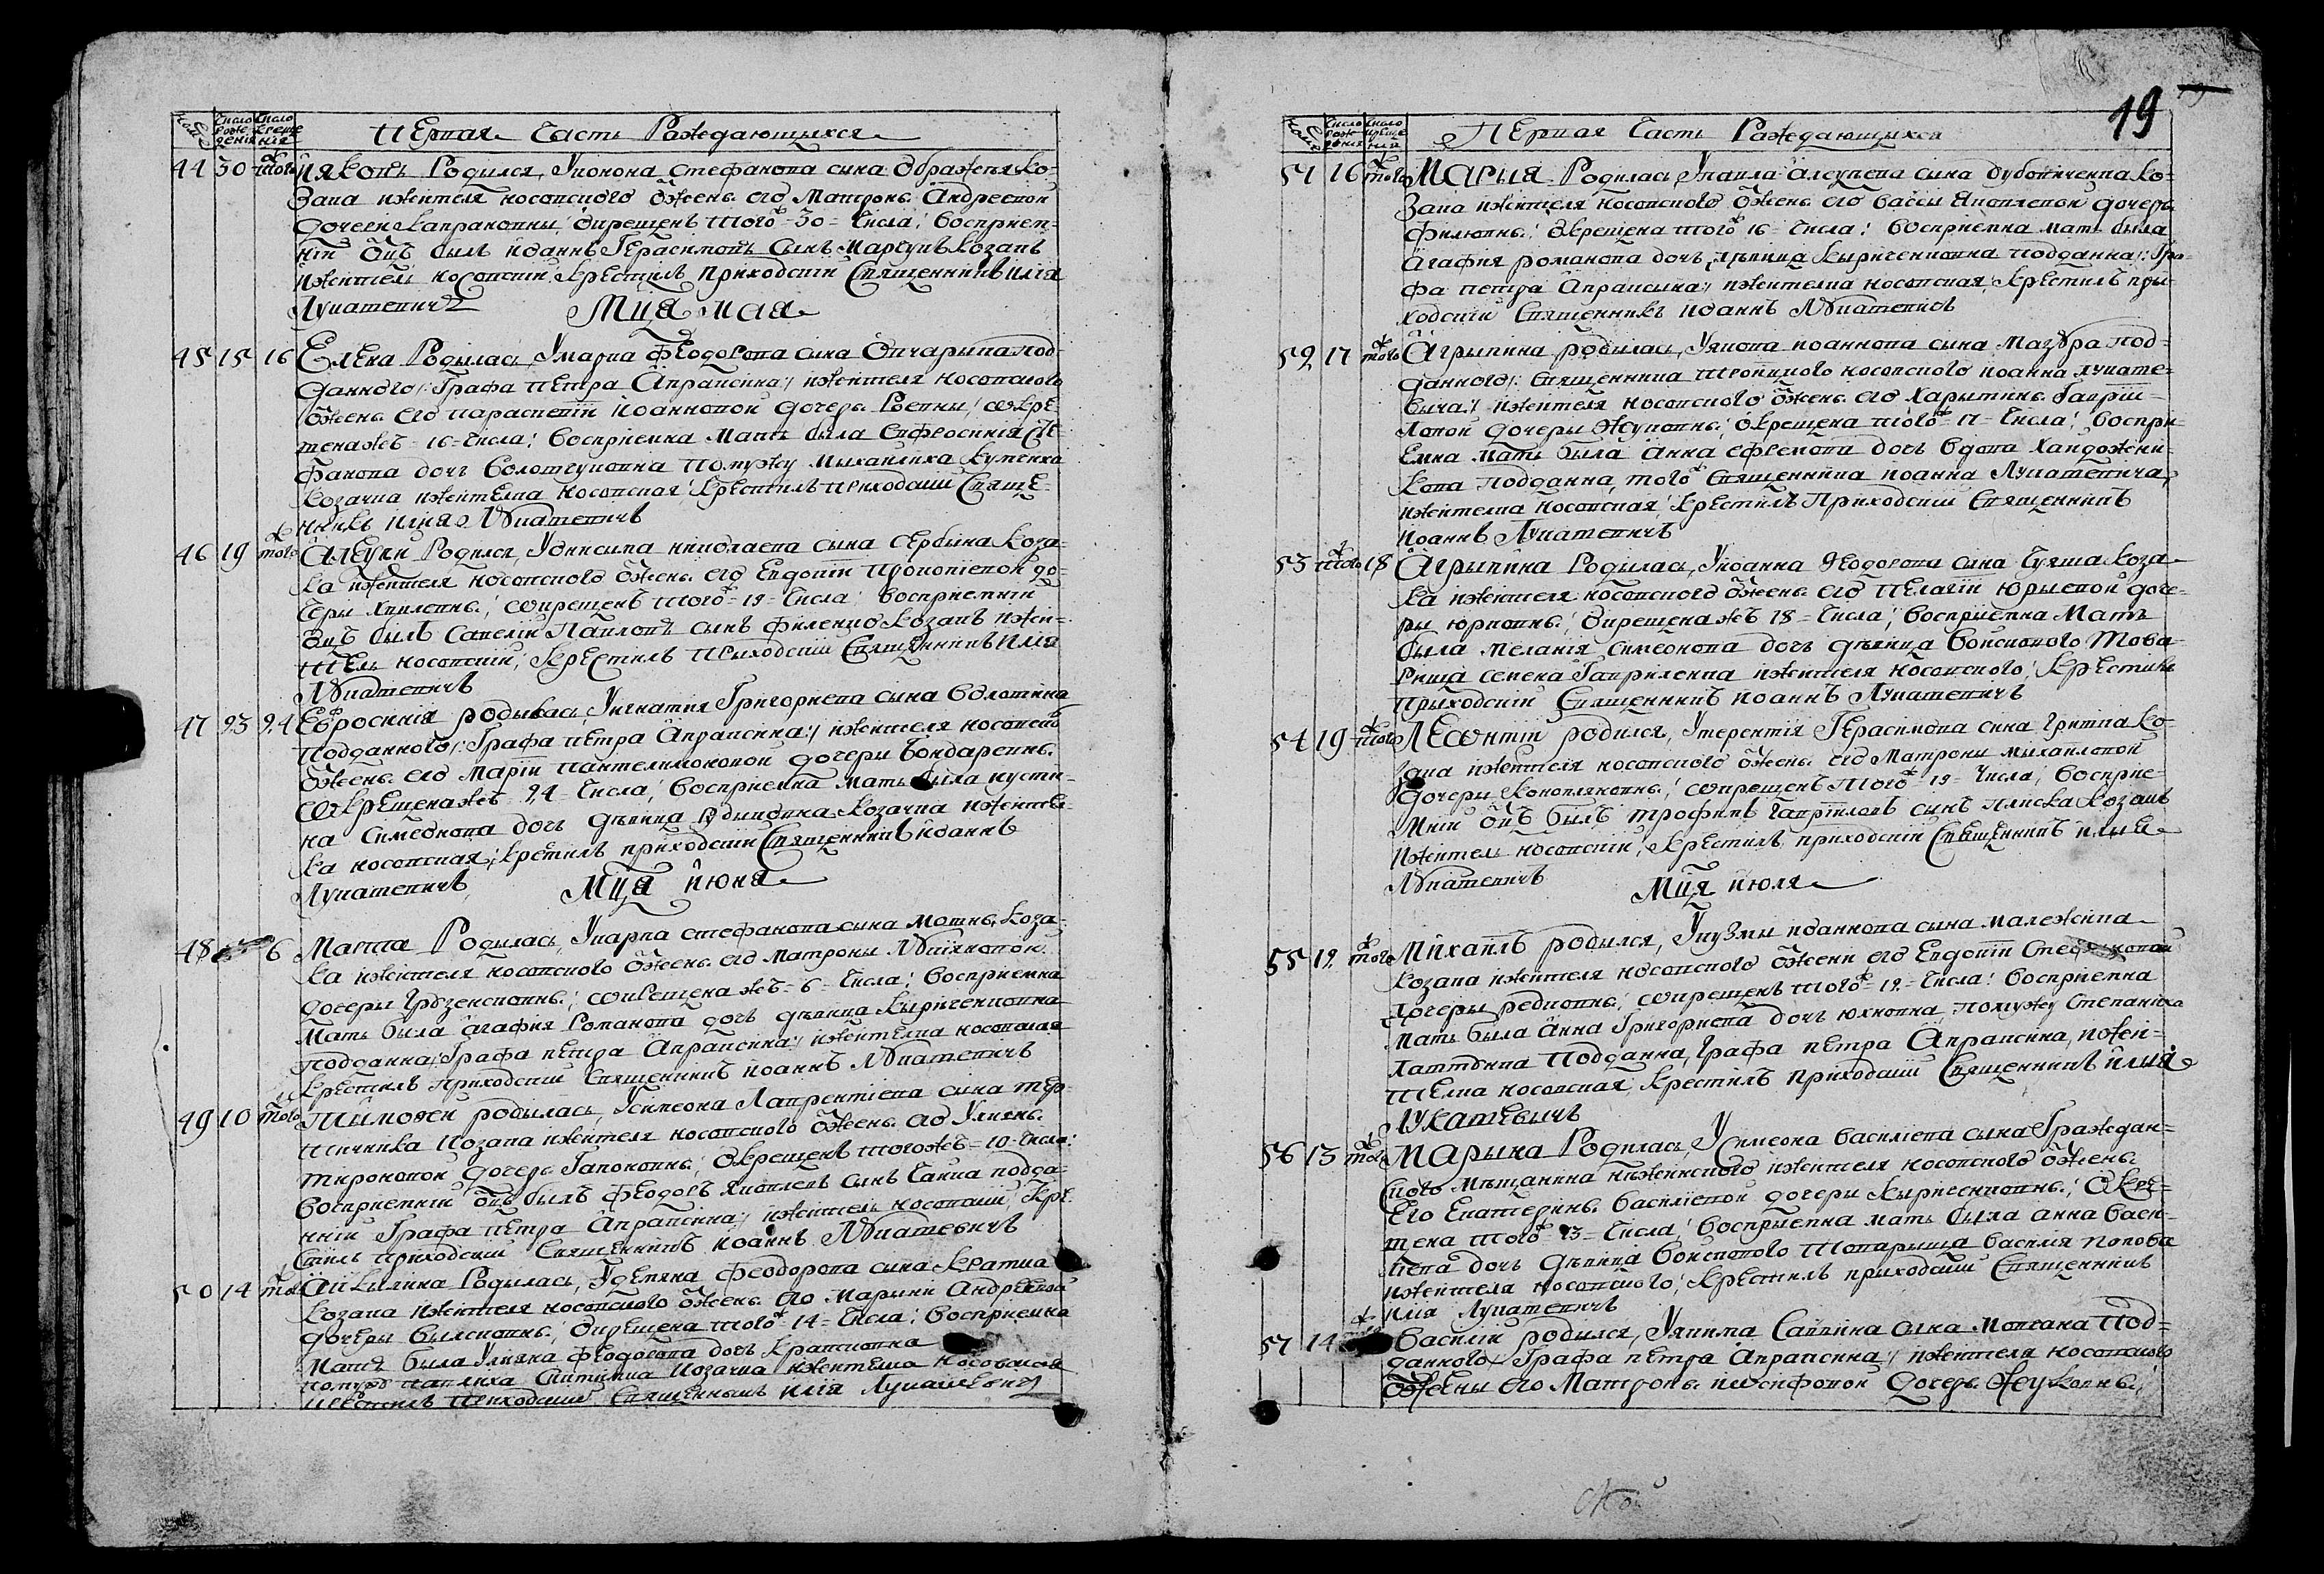 Число рожденія
Число крещенія
Перваѧ Часть Раждающыхся
44 30 того ж Иаковъ Родился, У кокона Стефанова сына Ображея ко-
зака жителя носовского ѿ жены его Матроны Андреевой
дочери Капрановны; ѡкрещенъ того ж 30 = числа; воспріем-
ній ѿцъ былъ Иоаннъ Герасимовъ сынъ козакъ
житель носовский; крестилъ приходский Священникъ Илия
Лукашевичъ
Мца мая
45 15 16 Елена Родилась, У марка Феодорова сына Овчарыка под-
данного /: Графа Петра Апраксина :/ жителя носовского
ѿ жены его параскевіи Иоанновой дочеры; ѡкре-
щена жъ = 16 = числа; воспріемна мать была Евфросинія Сте-
фанова дочъ по мужу Куценка
козачка жителка носовская; крестилъ приходский Свяще-
нникъ илия Лукашевичъ
46 19 того ж Алеѯѣи Родился, У дѡнисыма николаева сына Сербина коза-
ка жителя носовского ѿ жены его Евдокіи Прокопіевой до-
черы; ѡкрещенъ того ж = 19 = числа; воспріемній
ѿцъ былъ Савелій Павловъ сынъ Филенко козакъ жи-
тель носовскій; крестилъ прыходский Священникъ Илия
Лукашевичъ
47 23 24 Еѵфросинія родылась, У игнатия Григориева сына Волошина
подданного /: Графа Петра Апраксина :/ жителя носовско
ѿ жены его Маріи Пантелимоновой дочеры Бондаревны
ѡкрещена жъ = 24 = числа; воспріемна мать была иусти-
на Симеонова дочъ дѣвица козачка жител-
ка носовская; крестилъ приходский Священникъ Иоаннъ
Лукашевичъ
Мца июня
48 6 Марѳа Родылась, У карпа стефанова сына коза-
ка жителя носовского ѿ жены его Матроны Лукіяновой
дочеры; ѡкрещена жъ = 6 = числа; воспріемна
мать была агафия Романова дочъ дѣвица Кыриченковна
подданна /: Графа петра Апраксина :/ жителка носовская
крестилъ приходский Священникъ Иоаннъ Лукашевичъ
49 10 того ж Тимоѳей родылась, У симеона Лаврентіева сына
козака жителя носовского ѿ жены его Уліяны
Мироновой дочеры Гапоновны; ѡкрещенъ того жъ = 10 = числа;
воспріемній ѿцъ былъ Феодоръ Яковлевъ сынъ подда-
нній Графа Петра Апраксина :/ житель носовский; кре-
стилъ приходский Священникъ Иоаннъ Лукашевичъ
50 14 того Акилина Родылась, У демяна Феодорова сына
козака жителя носовского ѿ жены его Марыни Андреевой
дочеры; ѡкрещена того ж = 14 = числа; воспріемна
мать была Уліяна Феодорова дочъ
по мужу козачка жителка носовская
крестилъ приходский Священникъ Илія Лукашевичъ
19
Число рожденія
Число крещенія
Перваѧ Часть Раждающыхся
51 16 того ж Мария Родилась, У павла Алеѯѣева сына ко-
зака жителя носовского ѿ жены его Вассы Яковлевой дочеры
; ѡкрещена того ж 16 = числа; воспріемна мать была
Агафия романова дочъ дѣвица Кыриченковна подданна /: Гра-
фа петра Апраксина :/ жителка носовская; крестилъ при-
ходский Священникъ Иоаннъ Лукашевичъ
52 17 того ж Агрыпина родылась, У якова иоаннова сына под-
данного /: Священника троицкого носовского Иоанна Лукаше-
вича :/ жителя носовского ѿ жены его Харытины Гаврии-
ловой дочеры; ѡкрещена того ж 17 = числа; воспри-
емна мать была Анна Ефремова дочъ вдова
подданна того ж Священника Иоанна Лукашевича,
жителка носовская; крестилъ Приходский Священникъ
Иоаннъ Лукашевичъ
53 того ж 18 Агрыпина Родылась, У иоанна Феодорова сына коза-
ка жителя носовского ѿ жены его Пелагіи Юрыевой доче-
ры; ѡкрещена жъ 18 = числа; воспріемна Мать
была меланія симеонова дочъ дѣвица войскового това-
рища семена Гавриленка жителя носовского; крестилъ
прыходский Священникъ Иоаннъ Лукашевичъ
54 19 того ж Леѡнтій родился, У терентія Герасимова сина ко-
зака жителя носовского ѿ жены его Матроны михайловой
дочеры Конопляковны; ѡкрещенъ того ж = 19 = числа; воспріе-
мній ѿцъ былъ трофимъ гавріиловъ сынъ козакъ
житель носовский; крестилъ приходский Священникъ илия
Лукашевичъ
Мца июля
55 12 того ж Михаилъ родылся, У кузмы иоаннова сына
козака жителя носовского ѿ жени его Евдокіи Стефановой
дочеры; ѡкрещенъ того ж = 12 = числа; воспріемна
мать была Анна Григориева дочъ по мужу Степаниха
подданна, графа петра Апраксина, жи-
телка носовская; крестилъ приходский Священникъ Илия
Лукашевичъ
56 13 того ж Марына Родилась, У Симеона василіева сына Граждан-
ского мѣщанина нѣжинского жителя носовского ѿ жены
его Екатерины василіевой дочеры Кыриченковны; ѡкре-
щена того ж 13 = числа; воспріемна мать была анна васи-
лева дочъ дѣвица войскового товарыща Василия Попова
жителя носовского; крестилъ приходский Священникъ
илія Лукашевичъ
57 14 Василій родился, У якима Саввина сына под-
данного /: Графа петра Апраксина :/ жителя носовского
ѿ жены его Матроны иѡсифовой дочеры